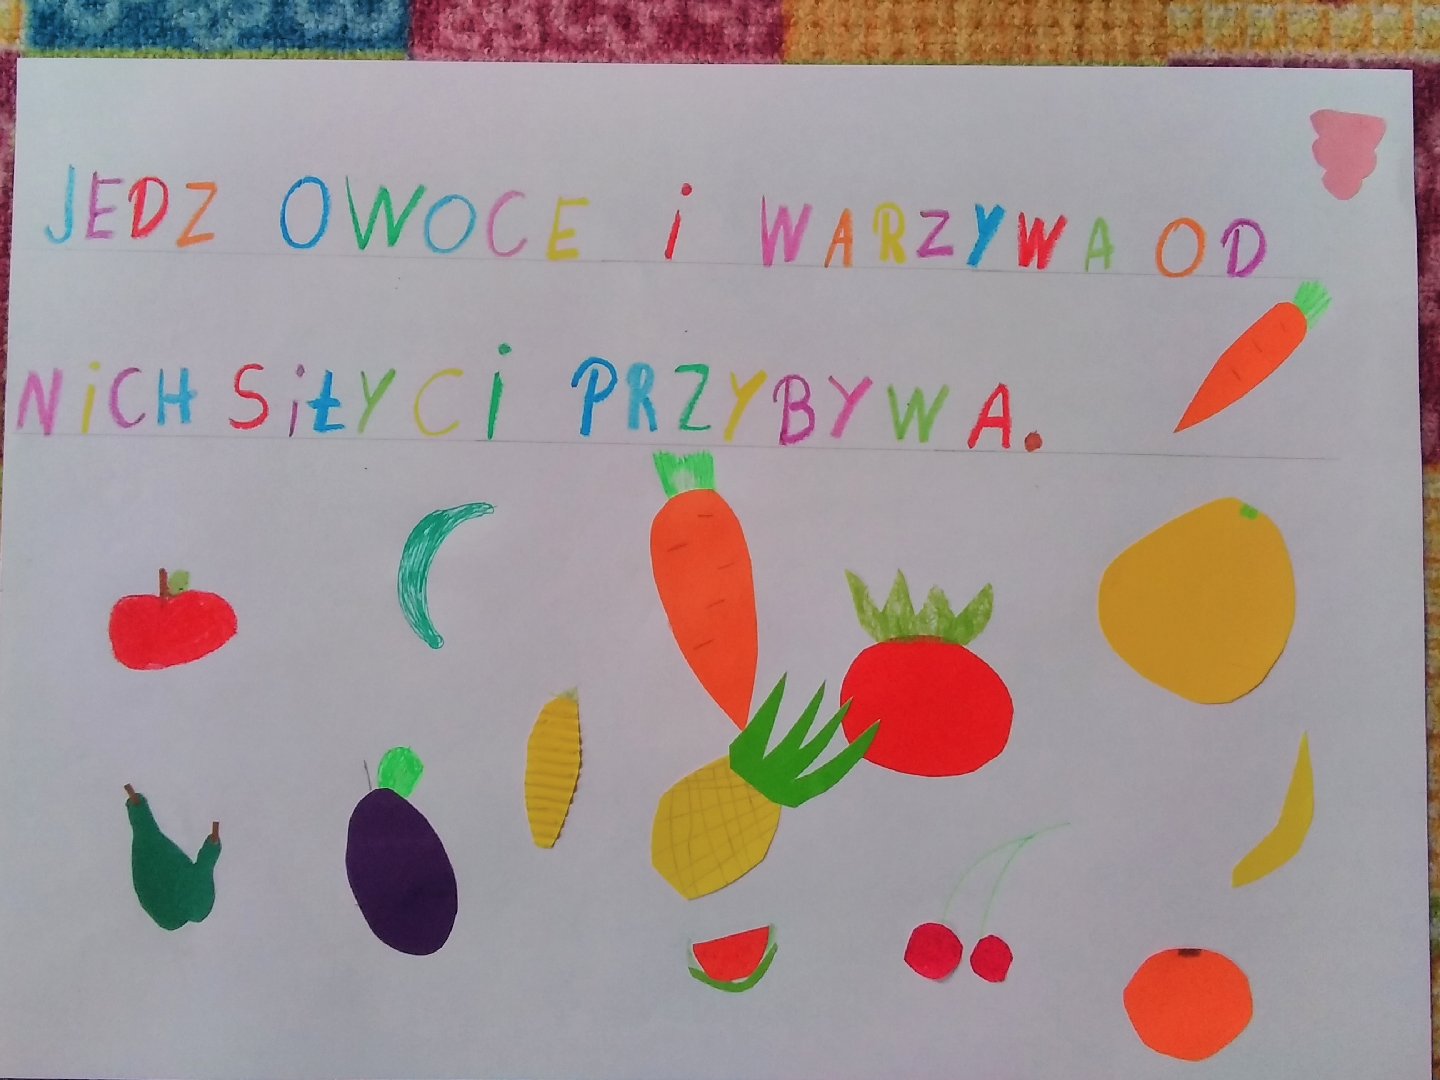 JEDZ OWOCE i WARZYWA OD
NiCH SiŁY Ci PRZYBYWA.